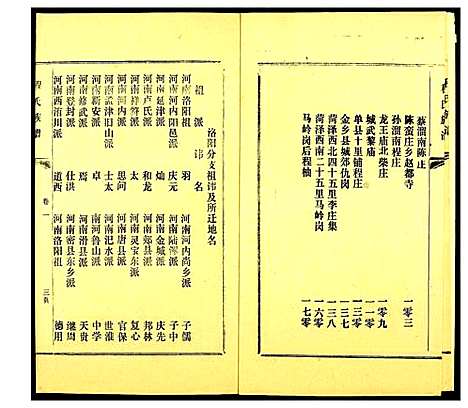 蔡溜南陈止
陈蛮庄乡赵都寺 一〇三
孙溜南程庄
龙王庙北柴庄 一〇九
城武黎庙 一一〇
单县十里铺程庄 一二七
金乡县城郊仇岗 一三七
菏泽西北四十五里李庄集 一三八
菏泽西南二十五里马岭岗 一六〇
马岭岗后程柚 一七〇
洛阳分支祖讳及所迁地名
祖派 讳名
河南洛阳祖 羽 河南河内尚乡派 子儒
河南河内阳邑派 庆元 河南陆浑派 子中
河南延津派 灿 河南金城派 庆先
河南卢氏派 和龙 河南郏县派 邦林
河南祥符派 太 河南灵宝东派 复心
河南孟津派 思问 河南唐县派 官保
河南汝阳旧山派 士太 河南汜水派 世淮
河南新安派 卓 河南鲁山派 中学
河南修武派 焉 河南滑县派 天贵
河南登封派 仕洪 河南密县东乡派 继周
河南西淅川派 道西 河南洛阳祖 德用
程氏族谱 卷一 三〇